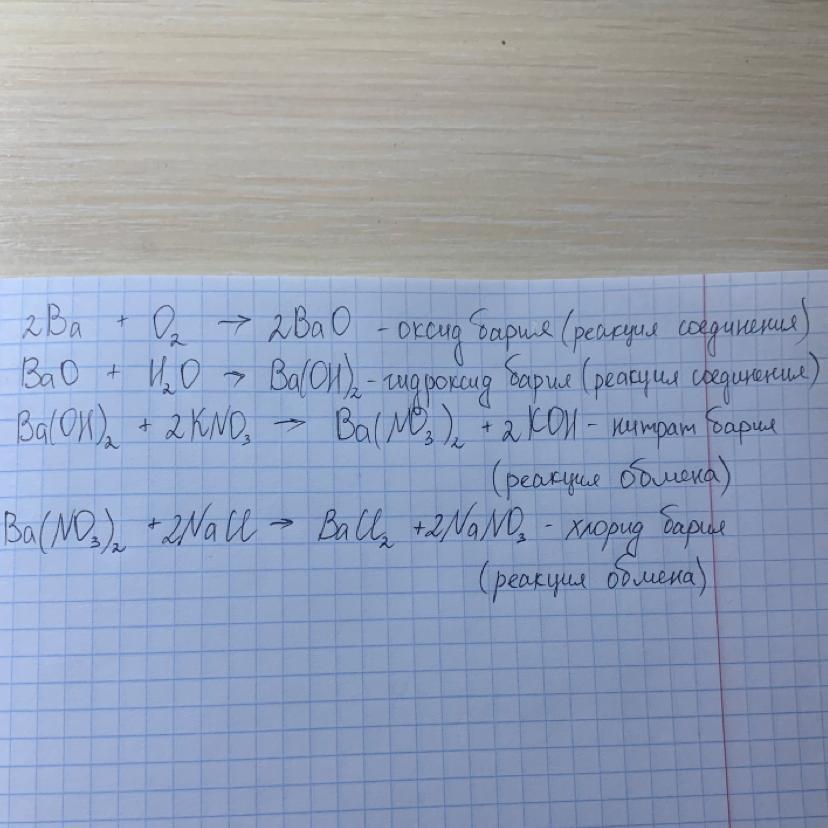 2Ba + O₂ → 2BaO - оксид бария (реакция соединения)
BaO + H₂O → Ba(OH)₂ - гидроксид бария (реакция соединения)
Ba(OH)₂ + 2KNO₃ → Ba(NO₃)₂ + 2KOH - нитрат бария
(реакция обмена)
Ba(NO₃)₂ + 2NaCl → BaCl₂ + 2NaNO₃ - хлорид бария
(реакция обмена)